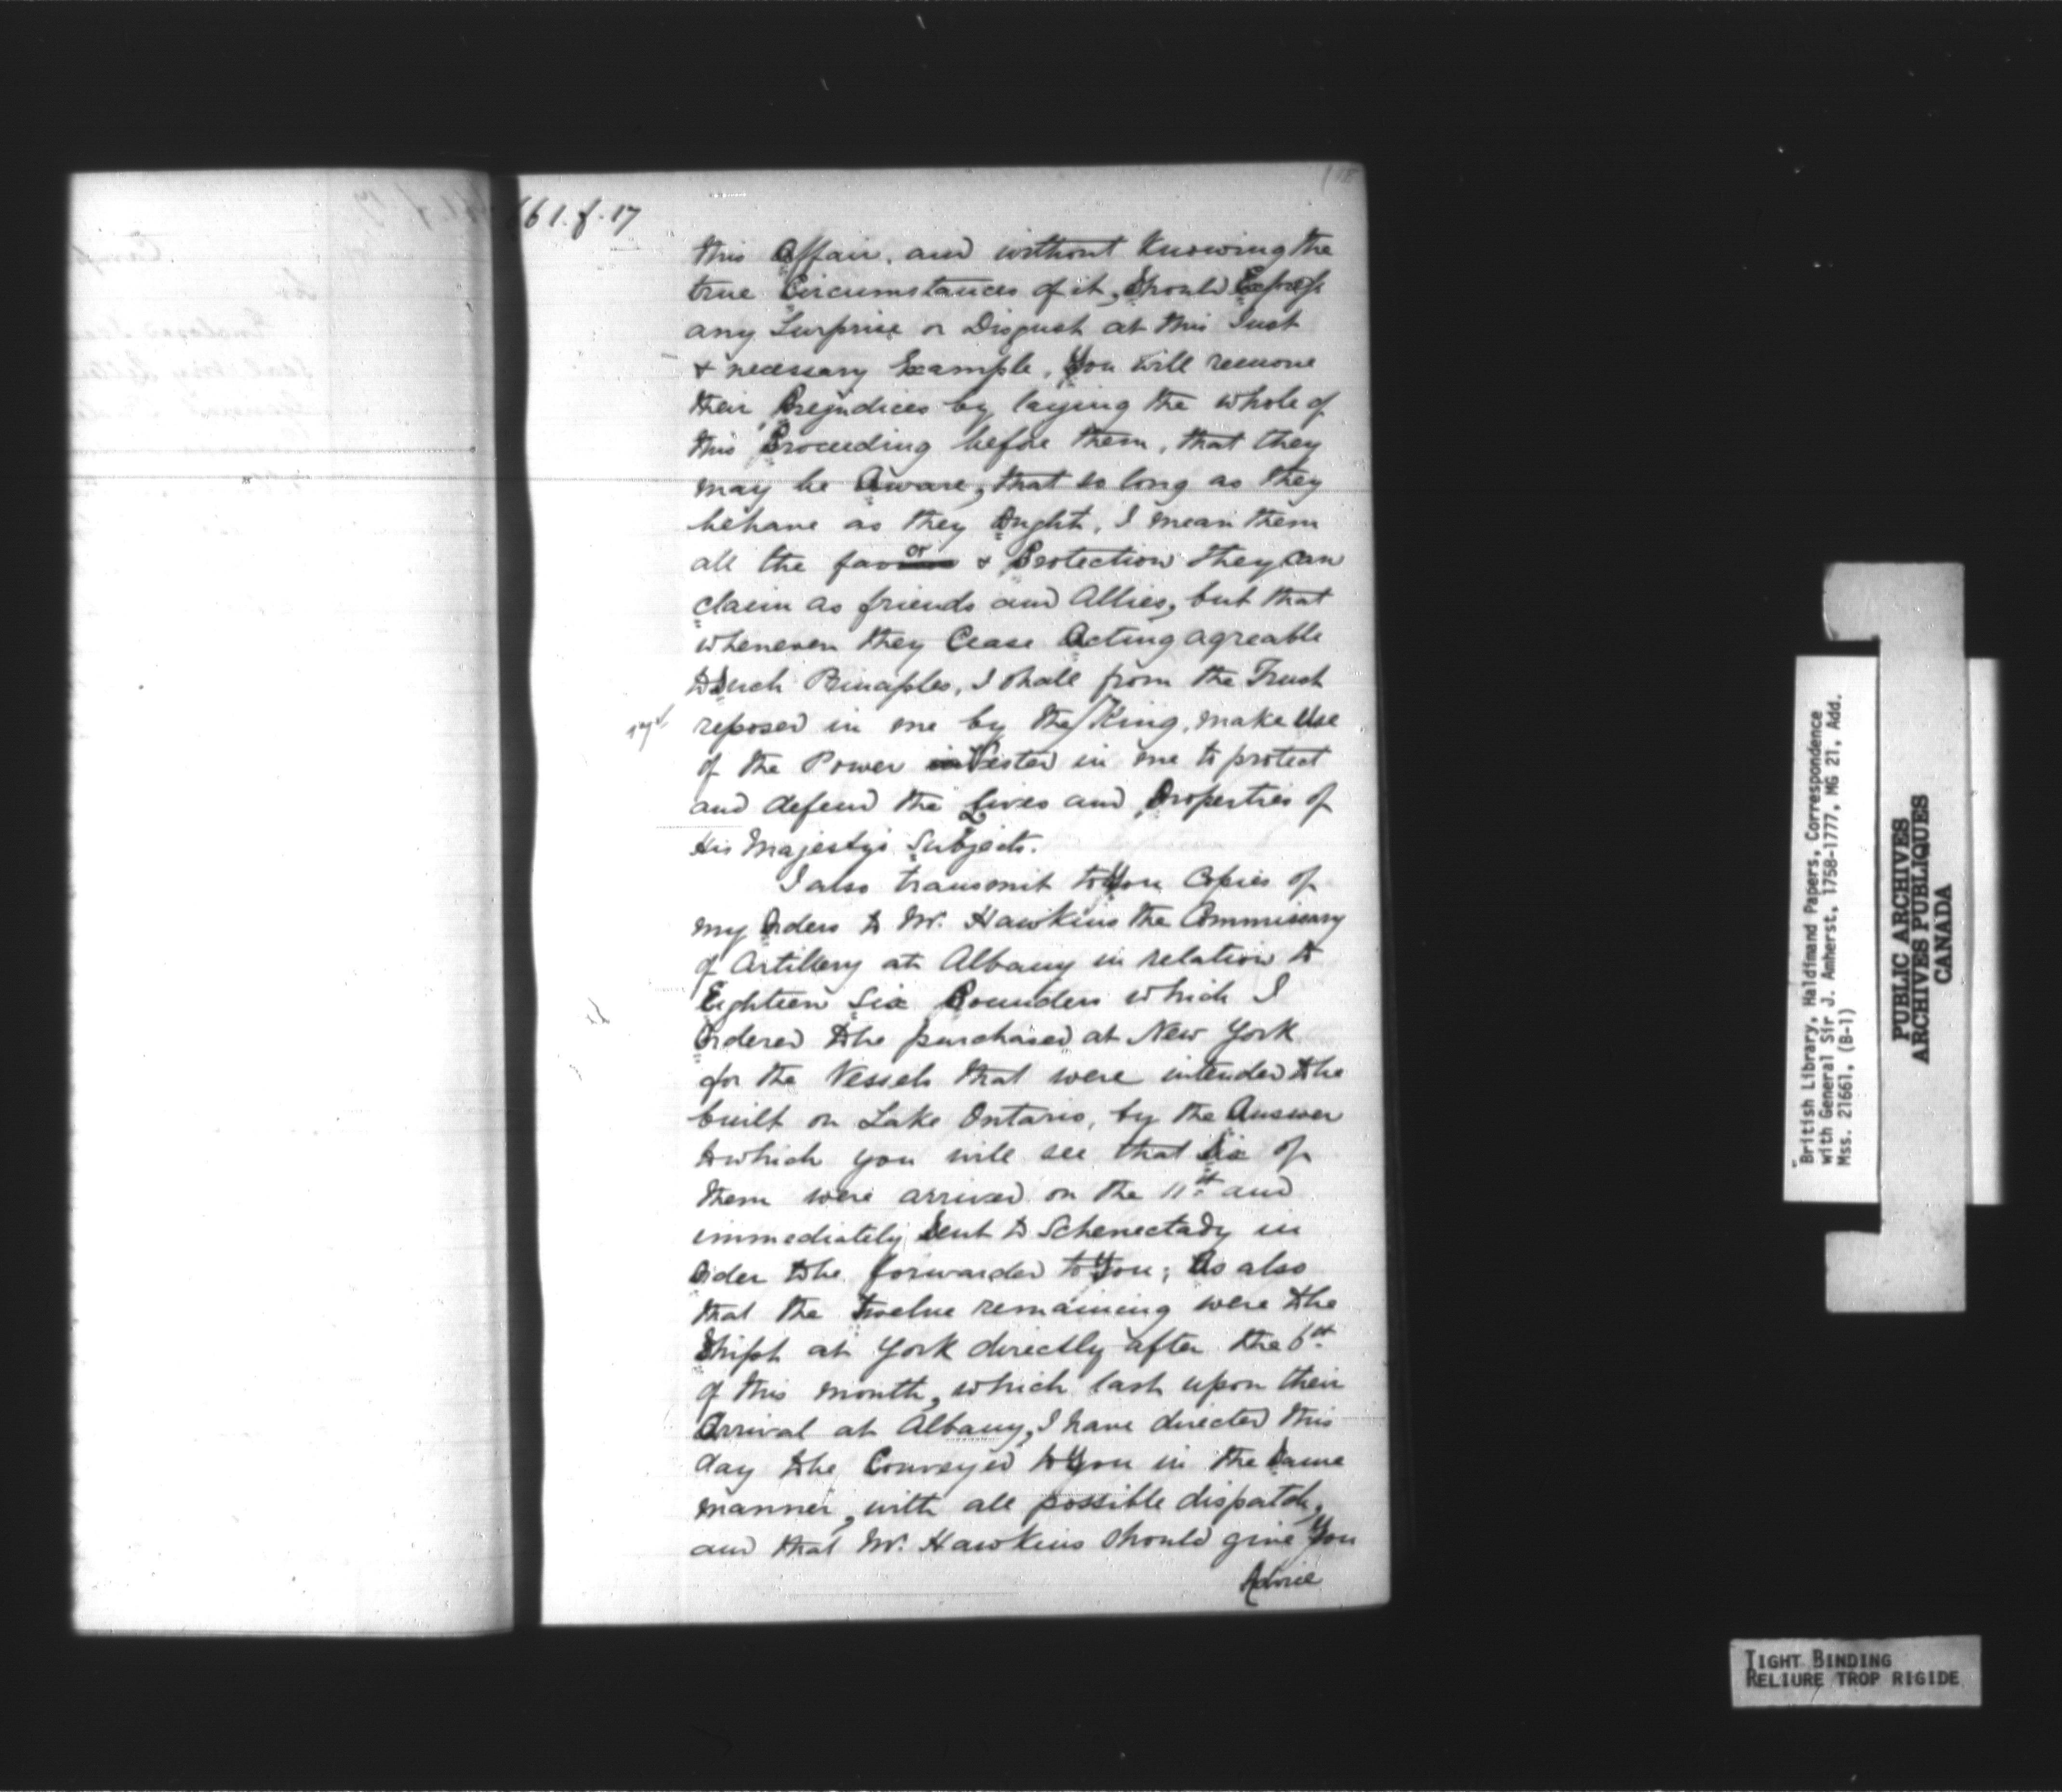 61. f. 17
this Affair, and without Knowing the
true Circumstances of it, Should Express
any Surprise or Disgust at this Just
& necessary Example, You will remove
their Prejudices by laying the whole of
this Proceeding before them, that they
may be Aware, that so long as they
behave as they Ought, I mean them
all the favor & Protection they can
claim as friends and Allies, but that
whenever they Cease Acting agreable
to Such Principles, I shall from the Trust
reposed in me by the King, make Use
of the Power Vested in me to protect
and defend the Lives and Properties of
His Majesty's Subjects.
I also transmit to You Copies of
my Orders to Mr. Hawkins the Commissary
of Artillery at Albany in relation to
Eighteen Six Pounders which I
Ordered to be purchased at New York
for the Vessels that were intended to be
built on Lake Ontario, by the Answer
to which you will see that Six of
them were arrived on the 11th and
immediately Sent to Schenectady in
Order to be forwarded to You; As also
that the Twelve remaining were to be
Shipt at York directly after the 6th
of this month, which last upon their
Arrival at Albany, I have directed this
day to be Conveyed to You in the Same
manner, with all possible dispatch,
and that Mr. Hawkins should give You
Advice
British Library, Haldimand Papers, Correspondence
with General Sir J. Amherst, 1758-1777, MG 21, Add.
Mss. 21661, (B-1)
PUBLIC ARCHIVES
ARCHIVES PUBLIQUES
CANADA
TIGHT BINDING
RELIURE TROP RIGIDE